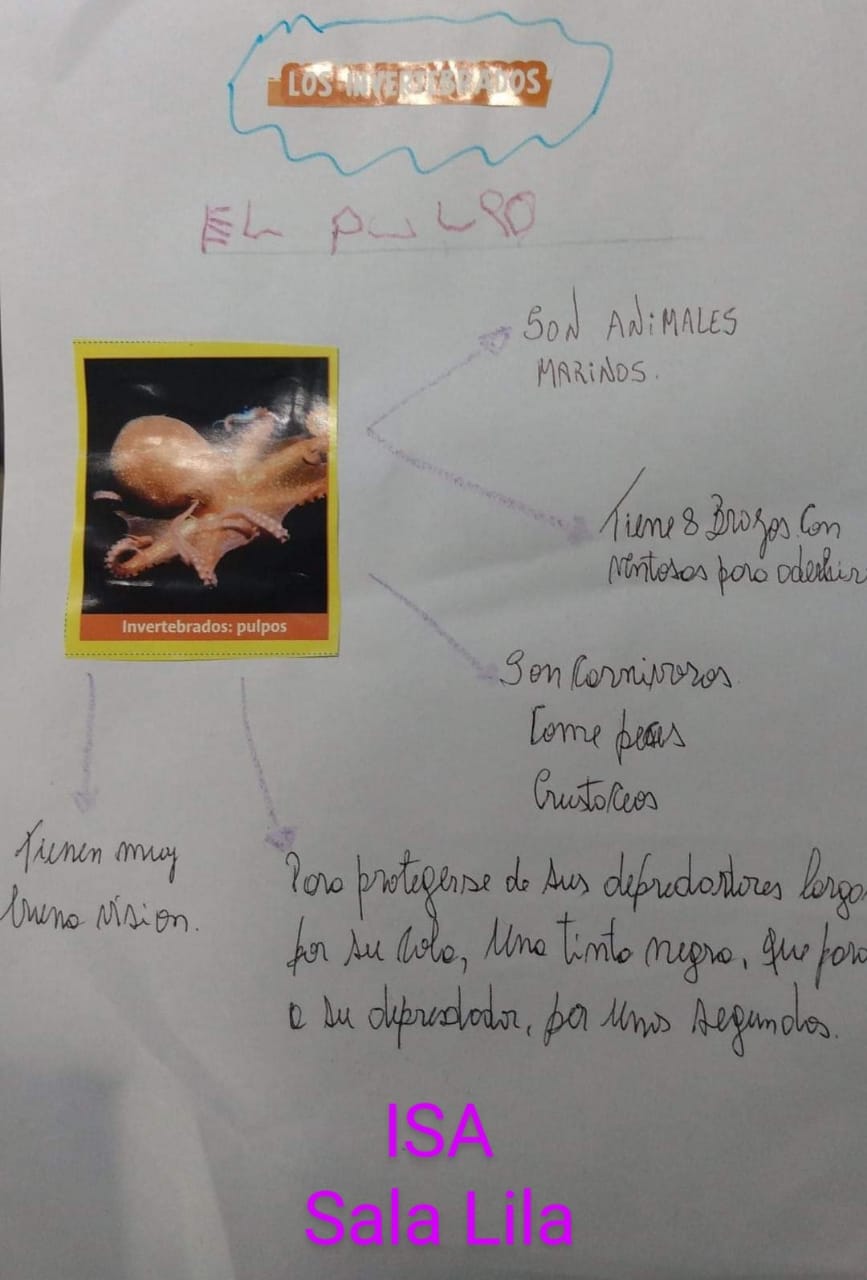 LOS INVERTEBRADOS
EL PULPO
SON ANiMALES
MARiNOS.
Tiene 8 Brazos Con
Ventosas para
Invertebrados: pulpos
Son Carnivoros
Come peces
Crustaceos
Tienen muy
buena vision.
Para protegerse de sus larga
por su cola, Una tinta negra, que para
a su por unos segundos.
ISA
Sala Lila